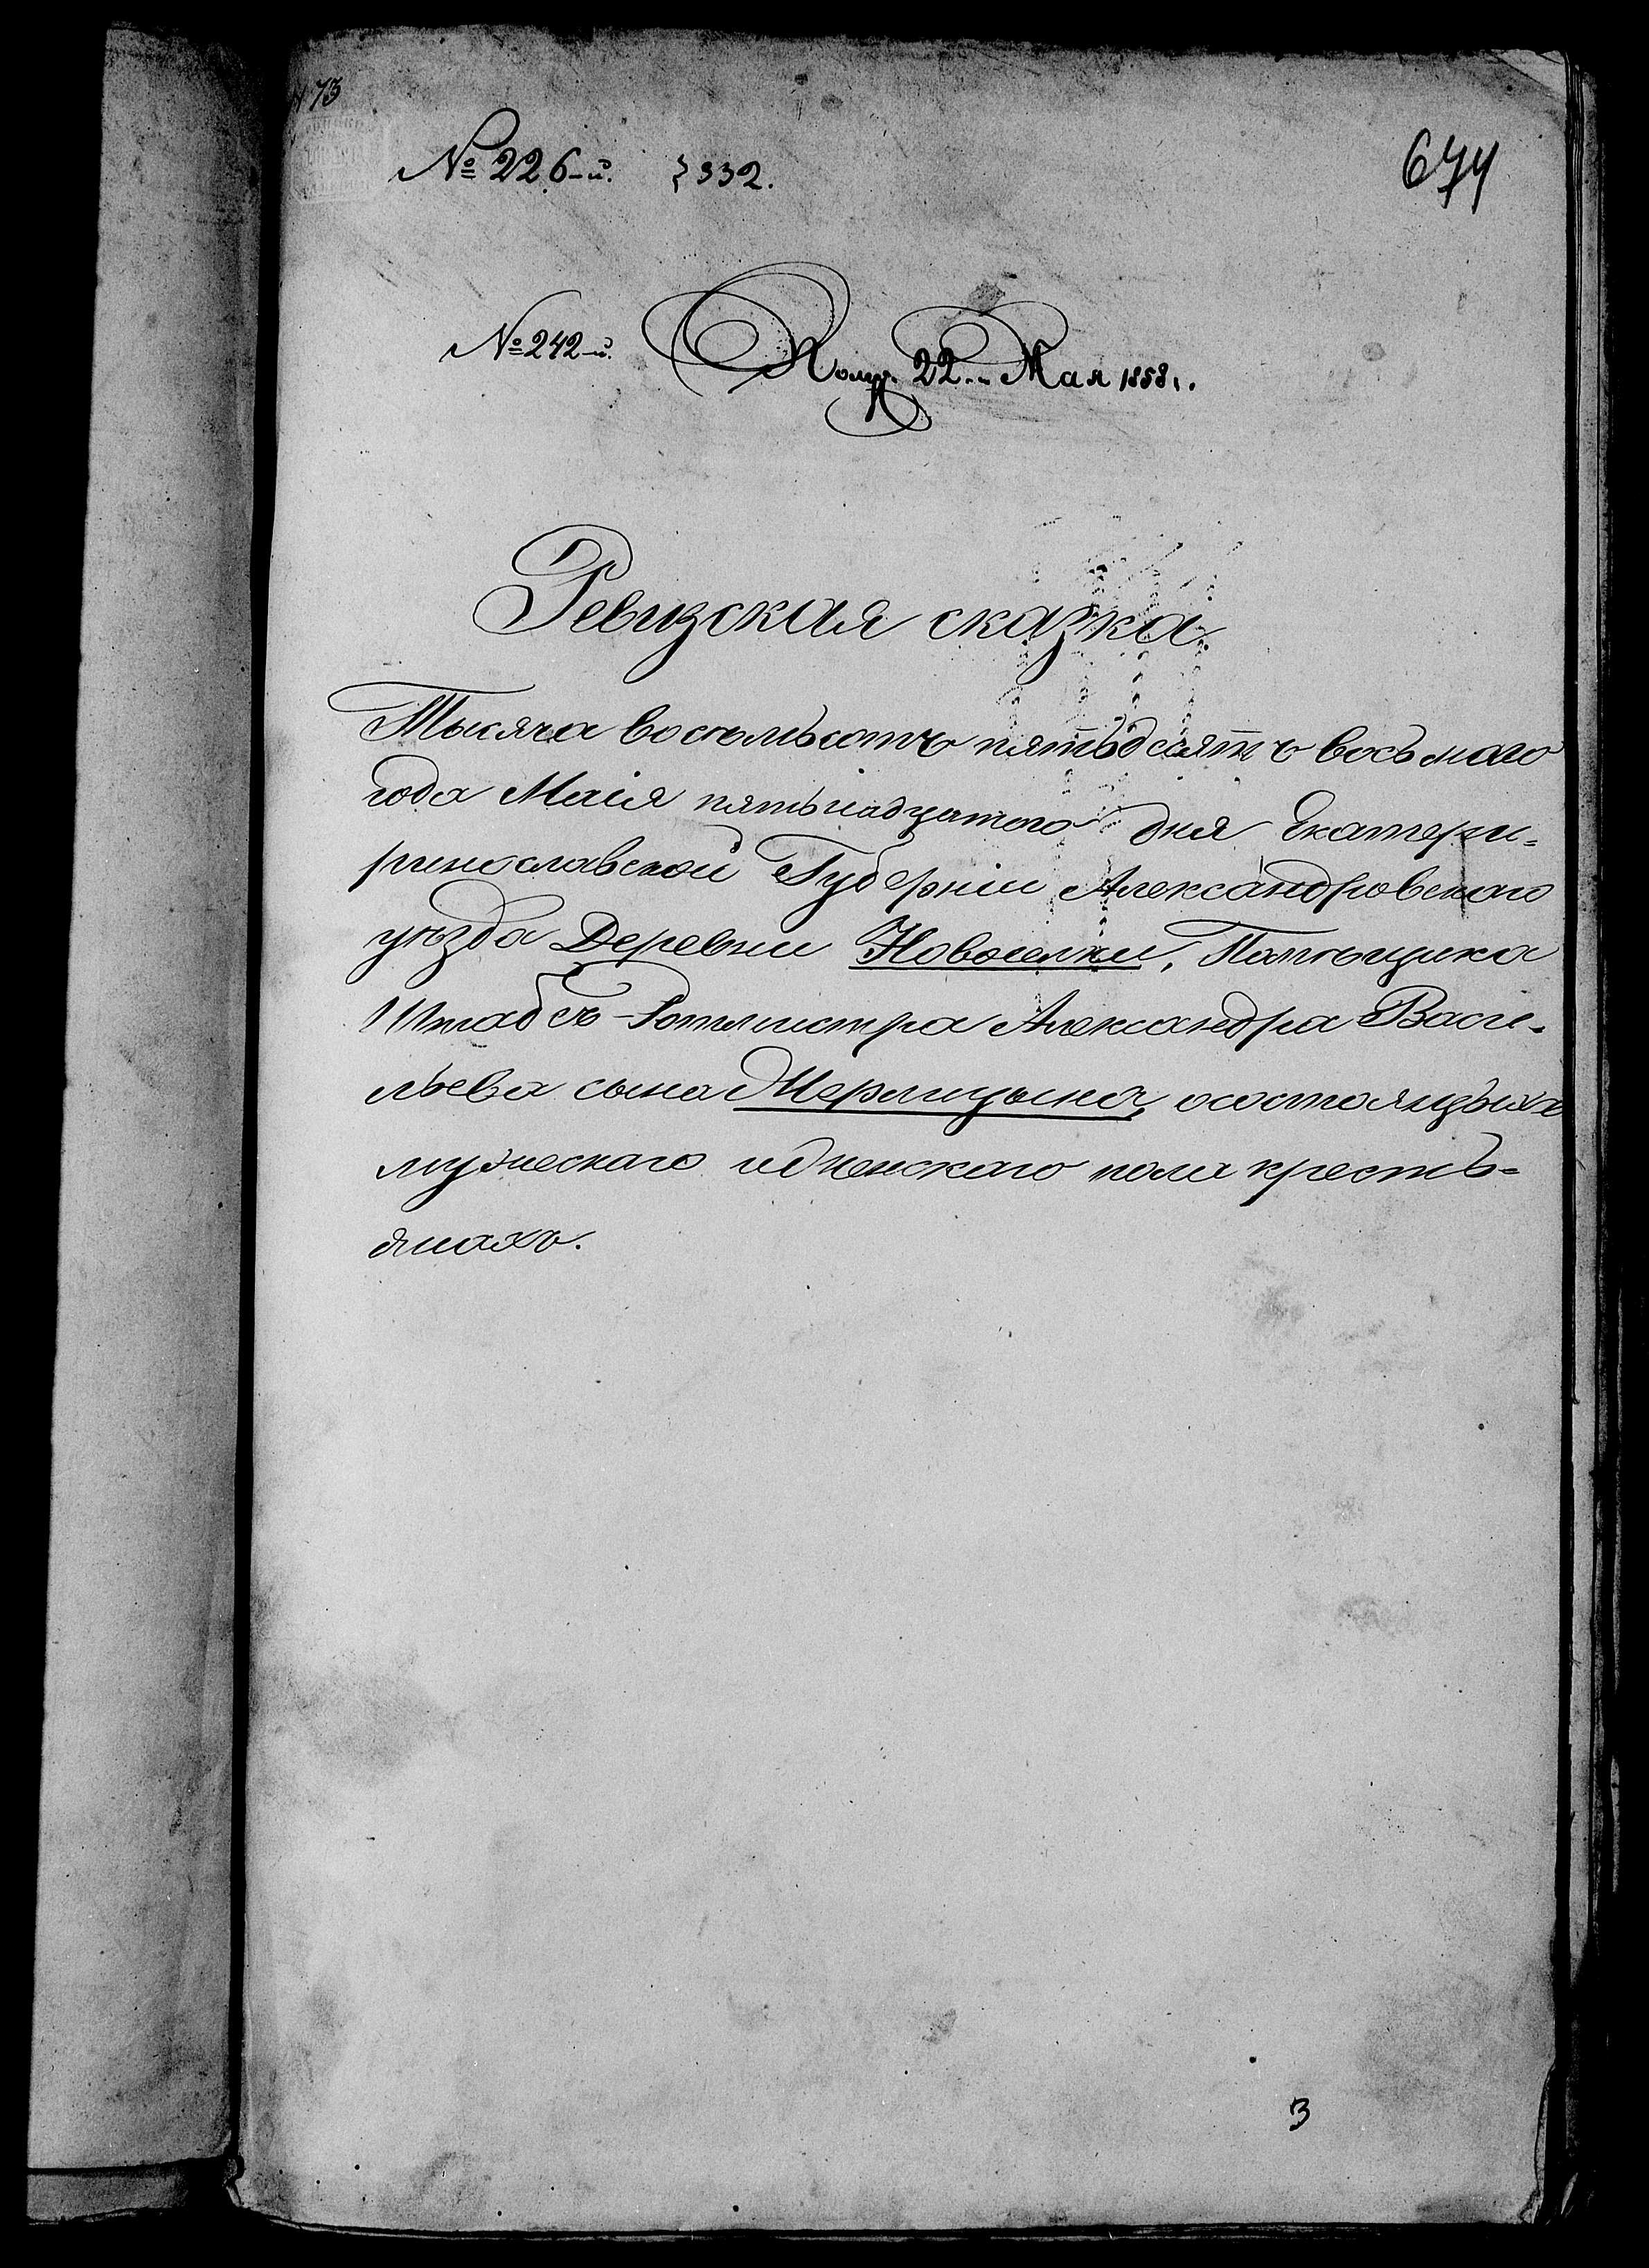 73
№ 226-й. } 332.
674
№ 242-й. Полу. 22-го Мая 1858 г.
Ревизская сказка.
Тысяча восемьсотъ пятьдесятъ восьмаго
года Маія пятьнадцатого дня Екатери-
ринославской Губерніи Александровскаго
уѣзда Деревни Новоселки, Помѣщика
Штабсъ-Ротмистра Александра Васи-
льева сына Мерлицына, осостоящыхъ
мужескаго и женскаго пола кресть-
янахъ.
3